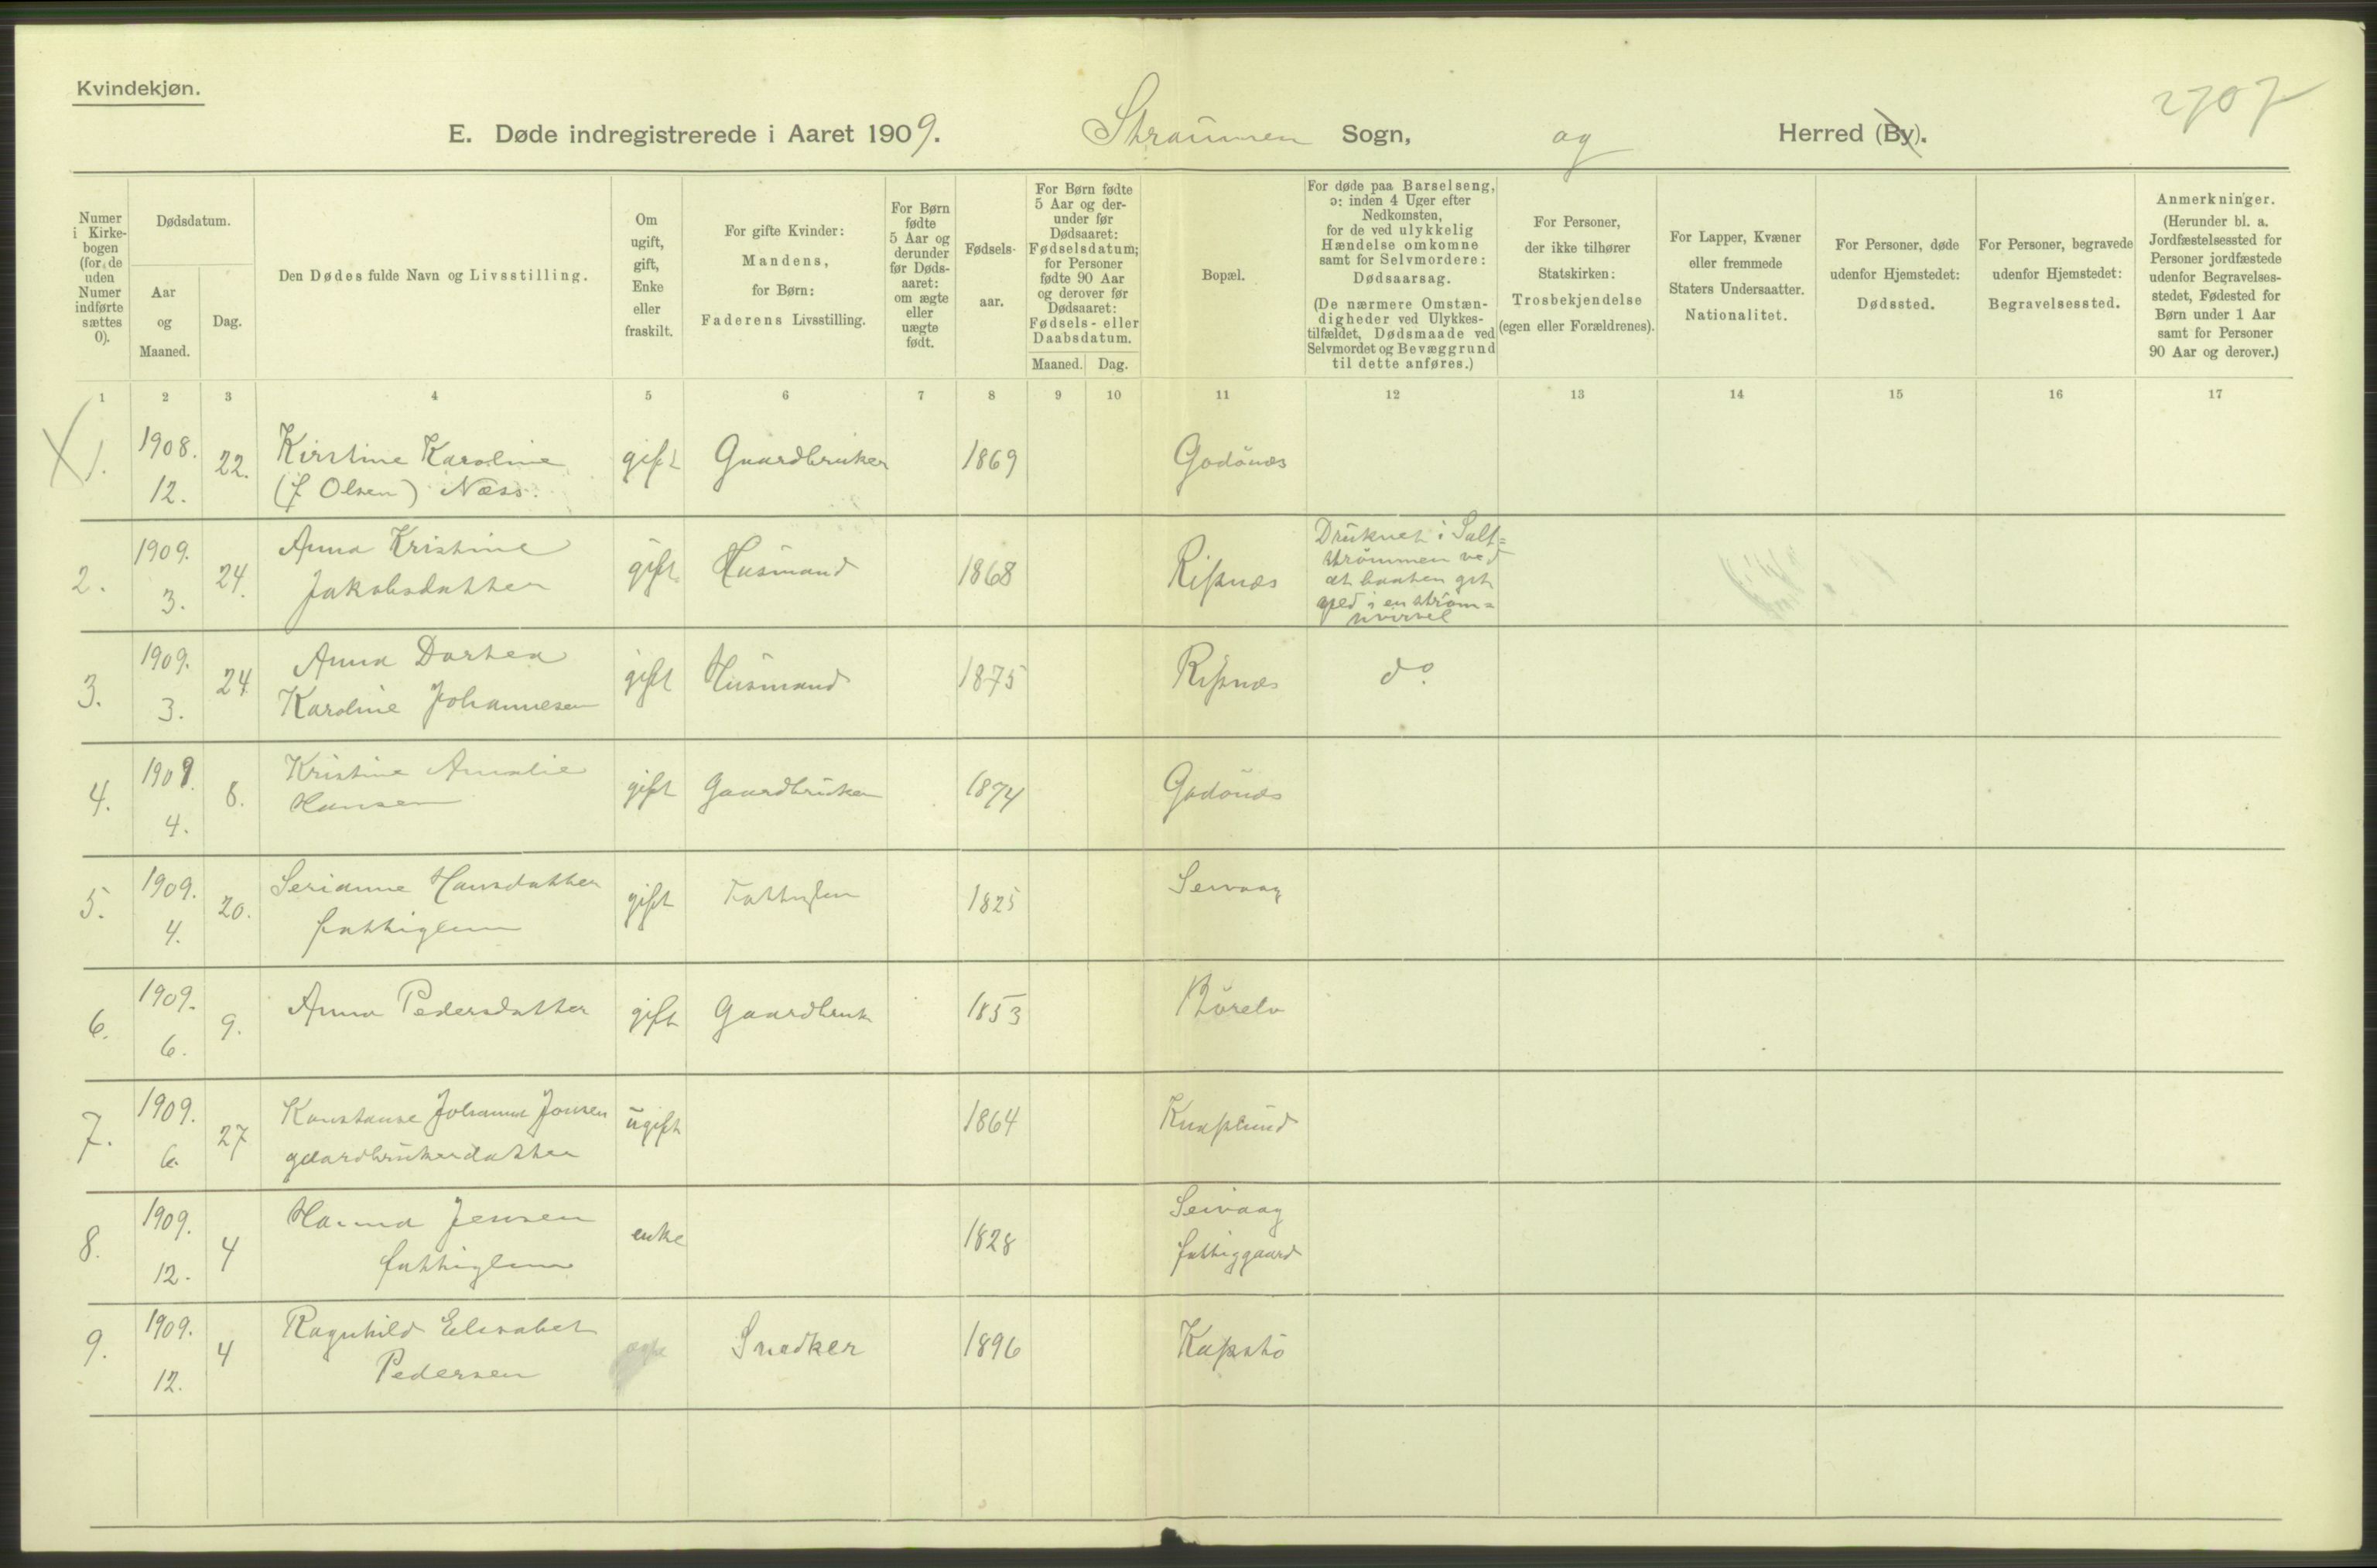 Kvindekjøn.
2707
E. Døde indregistrerede i Aaret 1909. Straumen Sogn, og Herred (By).
Numer i Kirke-bogen (for de uden Numer indførte sættes 0).
Dødsdatum.
Aar og Maaned.
Dag.
Den Dødes fulde Navn og Livsstilling.
Om ugift, gift, Enke eller fraskilt.
For gifte Kvinder: Mandens, for Børn: Faderens Livsstilling.
For Børn fødte 5 Aar og derunder før Døds-aaret: om ægte eller uægte født.
Fødsels-aar.
For Børn fødte 5 Aar og der-under før Dødsaaret: Fødselsdatum; for Personer fødte 90 Aar og derover før Dødsaaret: Fødsels- eller Daabsdatum.
Maaned. Dag.
Bopæl.
For døde paa Barselseng, ɔ: inden 4 Uger efter Nedkomsten, for de ved ulykkelig Hændelse omkomne samt for Selvmordere: Dødsaarsag. (De nærmere Omstæn-digheder ved Ulykkes-tilfældet, Dødsmaade ved Selvmordet og Bevæggrund til dette anføres.)
For Personer, der ikke tilhører Statskirken: Trosbekjendelse (egen eller Forældrenes).
For Lapper, Kvæner eller fremmede Staters Undersaatter. Nationalitet.
For Personer, døde udenfor Hjemstedet: Dødssted.
For Personer, begravede udenfor Hjemstedet: Begravelsessted.
Anmerkninger. (Herunder bl. a. Jordfæstelsessted for Personer jordfæstede udenfor Begravelses-stedet, Fødested for Børn under 1 Aar samt for Personer 90 Aar og derover.)
1 2 3 4 5 6 7 8 9 10 11 12 13 14 15 16 17
1. 1908. 12. 22. Kirstine Karoline (f Olsen) Næss. gift Gaardbruker 1869 Godönes
2. 1909. 3. 24. Anna Kristine Jakobsdatter gift Husmand 1868 Ripnes Druknet i Salt=
strömmen ved
at baaten gik
ned i en ström=
hvirvel
3. 1909. 3. 24 Anna Dorthea Karoline Johannesen gift Husmand 1875 Ripnes do.
4. 1909. 4. 8. Kristine Amalie Hansen gift Gaardbruker 1874 Godönes
5. 1909. 4. 20. Serianne Hansdatter fattiglem gift Fattiglem 1825 Seivaag
6. 1909. 6. 9. Anna Pedersdatter gift Gaardbruk 1853 Börelv
7. 1909. 6. 27 Konstanse Johanna Jonsen gaardbrukerdatter ugift 1864 Knaplund
8. 1909. 12. 4 Hanna Jensen fattiglem enke 1828 Seivaag fattiggaard
9. 1909. 12. 4 Ragnhild Elisabet Pedersen Snedker 1896 Kapstö